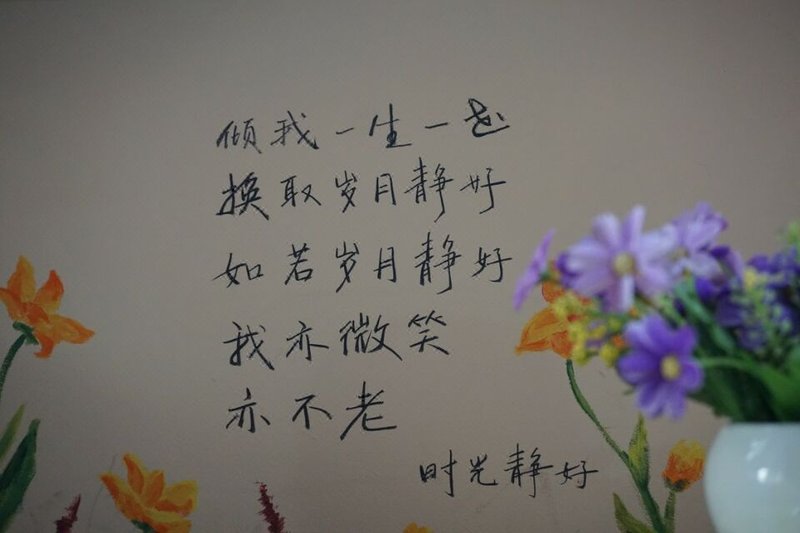 倾我一生一世
换取岁月静好
如若岁月静好
我亦微笑
亦不老
时光静好